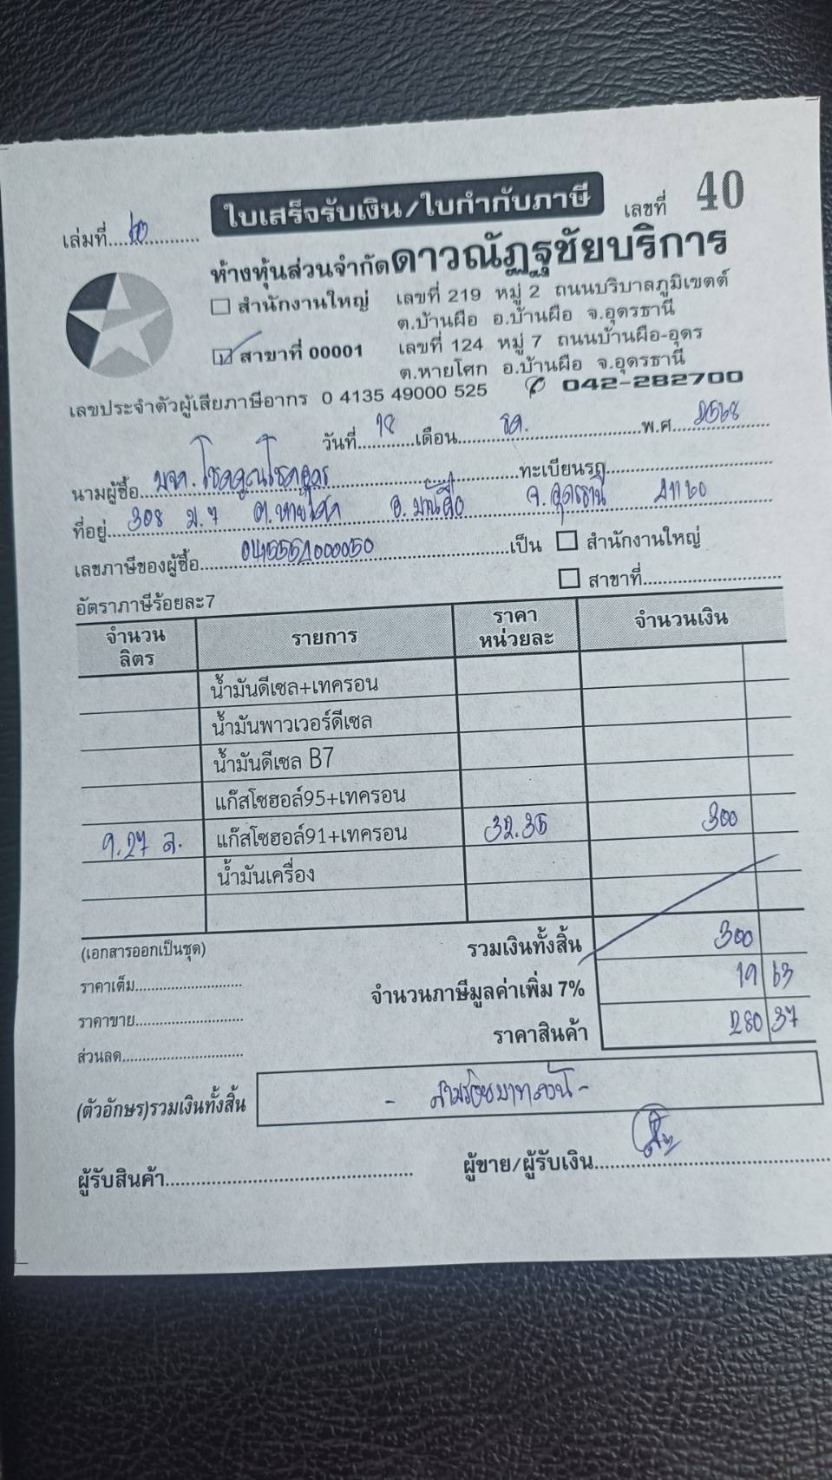 ใบเสร็จรับเงิน/ใบกำกับภาษี
เล่มที่.................. เลขที่ 40
ห้างหุ้นส่วนจำกัดดาวณัฏฐชัยบริการ
สำนักงานใหญ่ เลขที่ 219 หมู่ 2 ถนนบริบาลภูมิเขตต์
ต.บ้านผือ อ.บ้านผือ จ.อุดรธานี
สาขาที่ 00001 เลขที่ 124 หมู่ 7 ถนนบ้านผือ-อุดร
ต.หายโศก อ.บ้านผือ จ.อุดรธานี
เลขประจำตัวผู้เสียภาษีอากร 0 4135 49000 525 042-282700
วันที่ 18 เดือน ธค. พ.ศ. 2568
นามผู้ซื้อ บจก. ทะเบียนรถ
ที่อยู่ 308 ม.7 ต.หายโศก อ.บ้านผือ จ.อุดรธานี 41160
เลขภาษีของผู้ซื้อ เป็น สำนักงานใหญ่
สาขาที่
อัตราภาษีร้อยละ7
จำนวน ลิตร รายการ ราคา หน่วยละ จำนวนเงิน
น้ำมันดีเซล+เทครอน
น้ำมันพาวเวอร์ดีเซล
น้ำมันดีเซล B7
แก๊สโซฮอล์95+เทครอน
9.27 ล. แก๊สโซฮอล์91+เทครอน 32.35 300
น้ำมันเครื่อง
(เอกสารออกเป็นชุด) รวมเงินทั้งสิ้น 300
ราคาเต็ม
จำนวนภาษีมูลค่าเพิ่ม 7% 19 63
ราคาขาย
ราคาสินค้า 280 37
ส่วนลด
(ตัวอักษร)รวมเงินทั้งสิ้น - สามร้อยบาทถ้วน -
ผู้รับสินค้า ผู้ขาย/ผู้รับเงิน